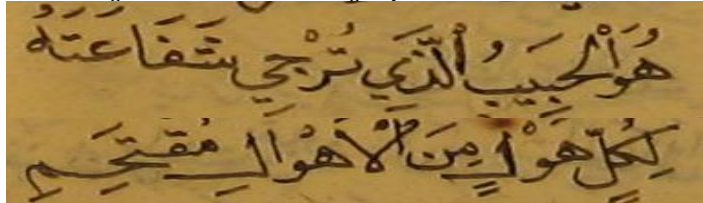 هُوَ الْحَبِيبُ الَّذِي تُرْجِي شَفَاعَتَهُ
لِكُلِّ هَوْلٍ مِنَ الْأَهْوَالِ مُقْتَحِمِ